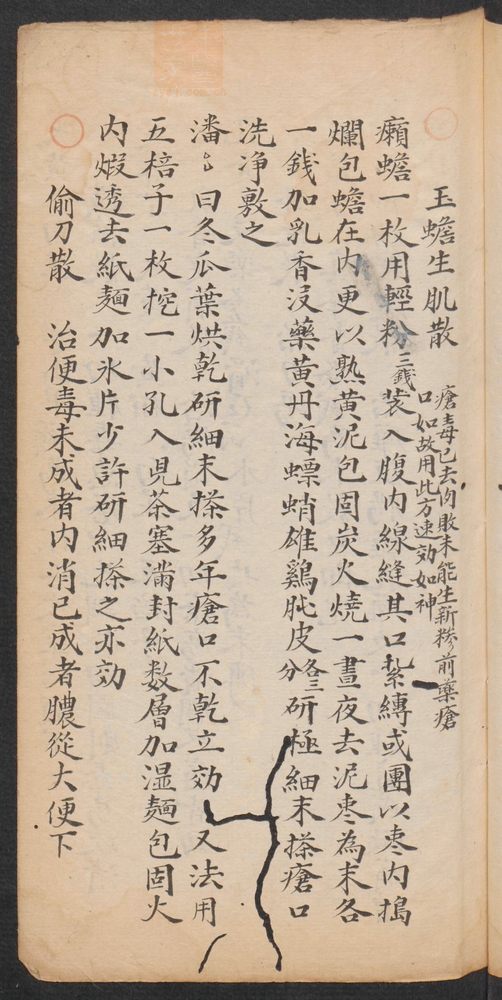 玉蟾生肌散 瘡毒已去肉敗未能生新糝前藥瘡
口如故用此方速効如神
癩蟾一枚用輕粉三錢裝入腹内線縫其口紮縛或團以棗内搗
爛包蟾在内更以熟黄泥包固炭火燒一晝夜去泥棗為末各
一錢加乳香没藥黄丹海螵蛸雄鷄肫皮各三分研極細末搽瘡口
洗净敷之
潘曰冬瓜葉烘乾研細末搽多年瘡口不乾立効 又法用
五棓子一枚挖一小孔入児茶塞滿封紙数層加湿麵包固火
内煆透去紙麵加氷片少許研細搽之亦効
偷刀散 治便毒未成者内消已成者膿從大便下